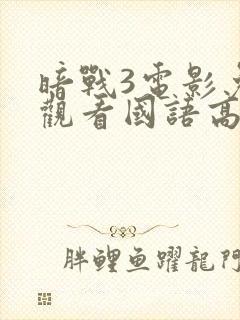 暗戰3電影
觀看國語高
胖鯉魚躍龍門